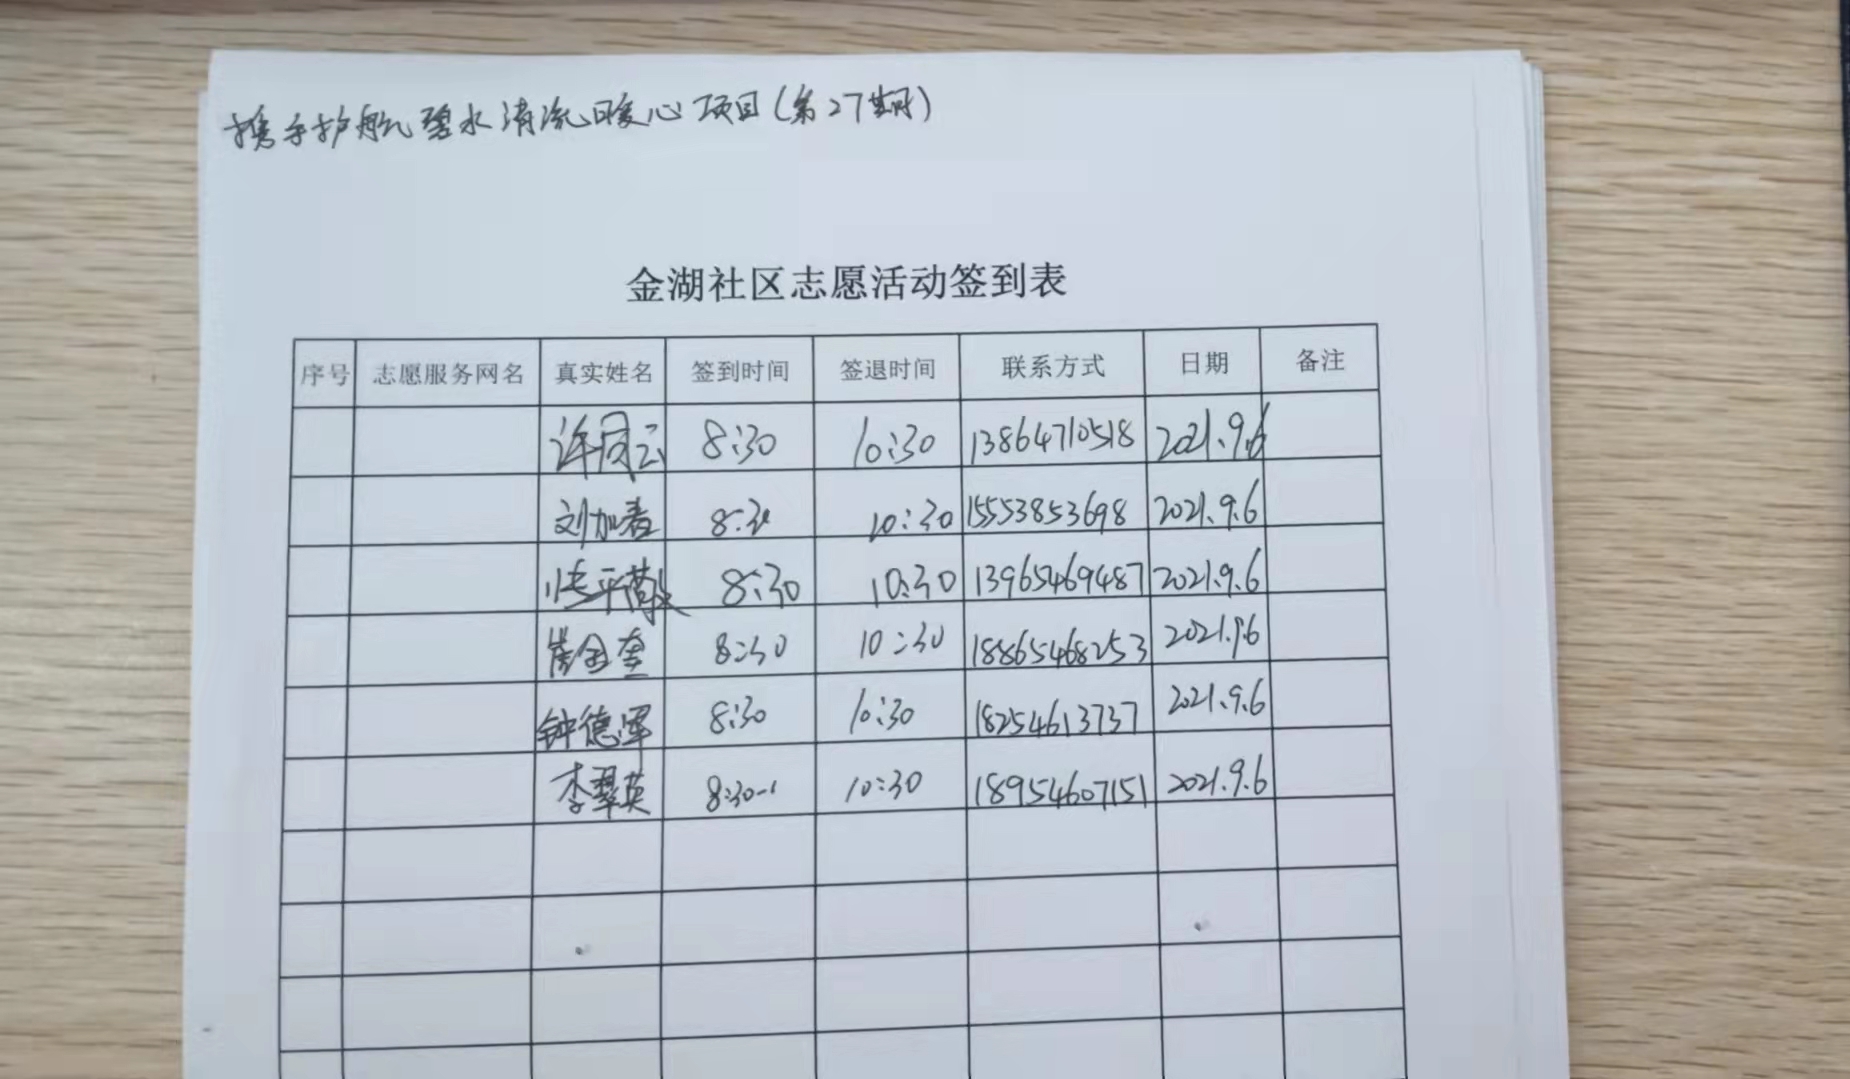 携手护航碧水清流暖心项目(第27期)
金湖社区志愿活动签到表
序号 志愿服务网名 真实姓名 签到时间 签退时间 联系方式 日期 备注
许同云 8:30 10:30 13864710518 2021.9.6
刘加春 8:30 10:30 15553853698 2021.9.6
8:30 10:30 13965469487 2021.9.6
崔金奎 8:30 10:30 18865468253 2021.9.6
钟德军 8:30 10:30 18254613737 2021.9.6
李翠英 8:30 10:30 18954607151 2021.9.6